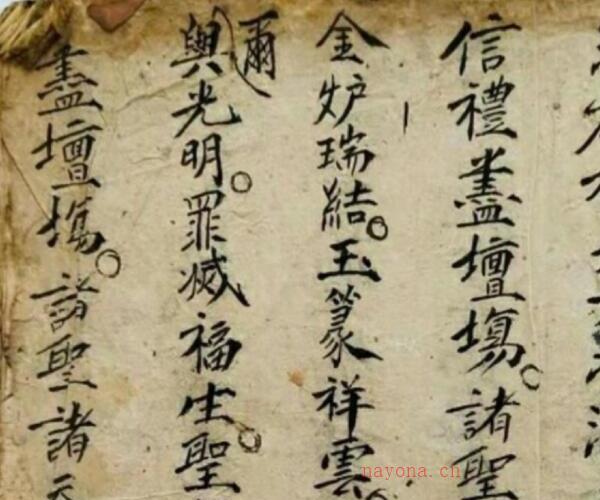 信禮盡壇場。諸聖
金炉瑞結。玉篆祥雲。
爾
與光明。罪滅福生。聖
盡壇場。諸聖諸天
nayona.cn